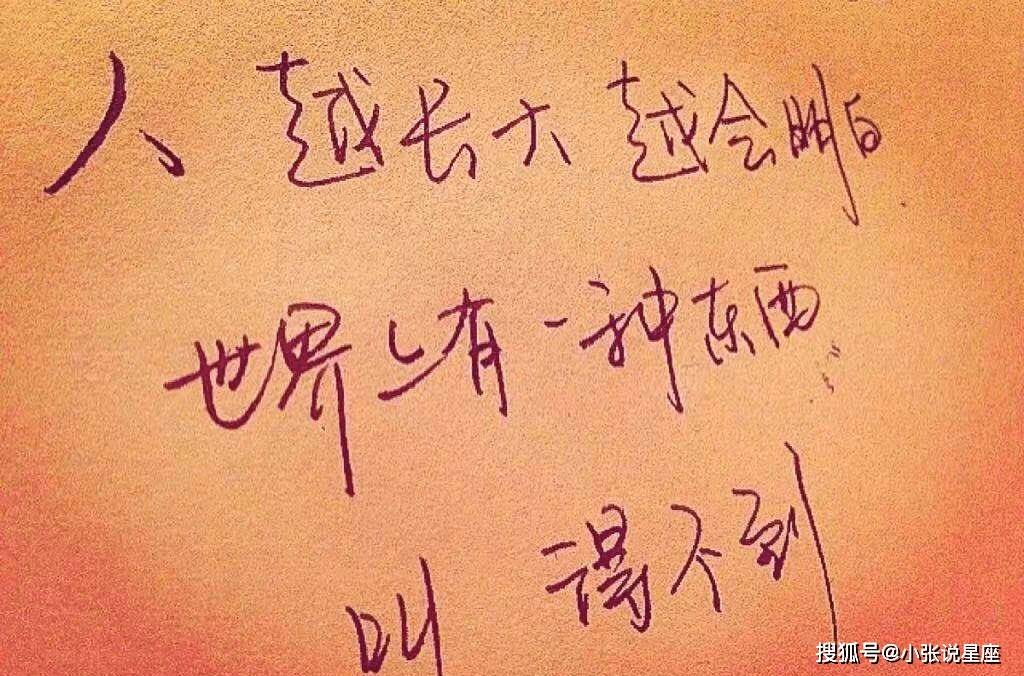 人 越长大 越会明白
世界上有一种东西
叫 得不到
搜狐号@小张说星座